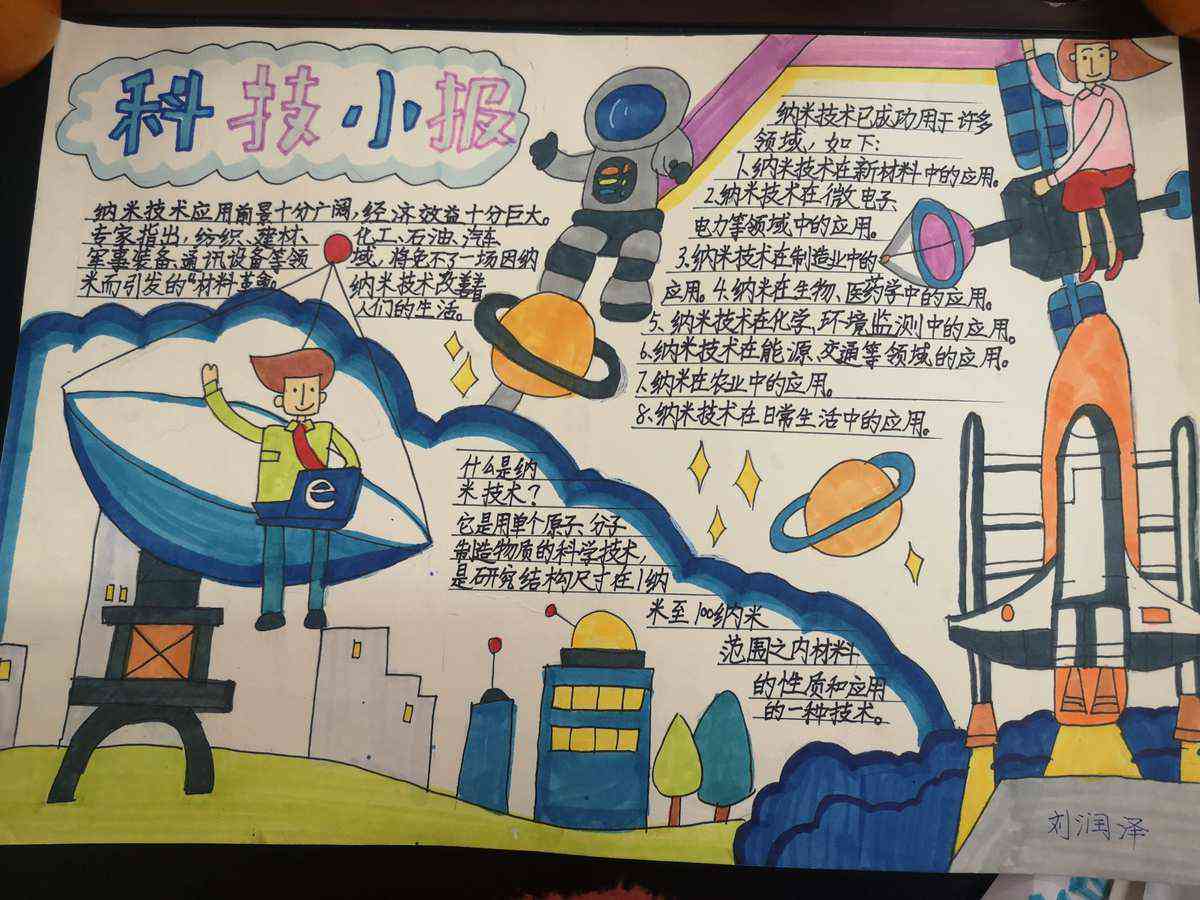 科技小报
纳米技术应用前景十分广阔,经济效益十分巨大。
专家指出,纺织、建材、化工、石油、汽车
军事装备、通讯设备等领域,将免不了一场因纳
米而引发的“材料革命”。纳米技术改善着
人们的生活。
纳米技术已成功用于许多
领域,如下:
1.纳米技术在新材料中的应用。
2.纳米技术在微电子
电力等领域中的应用。
3.纳米技术在制造业中的
应用。4.纳米在生物、医药学中的应用。
5、纳米技术在化学、环境监测中的应用。
6.纳米技术在能源、交通等领域的应用。
7.纳米在农业中的应用。
8、纳米技术在日常生活中的应用。
什么是纳
米技术?
它是用单个原子、分子
制造物质的科学技术,
是研究结构尺寸在1纳
米至100纳米
范围之内材料
的性质和应用
的一种技术。
e
刘润泽